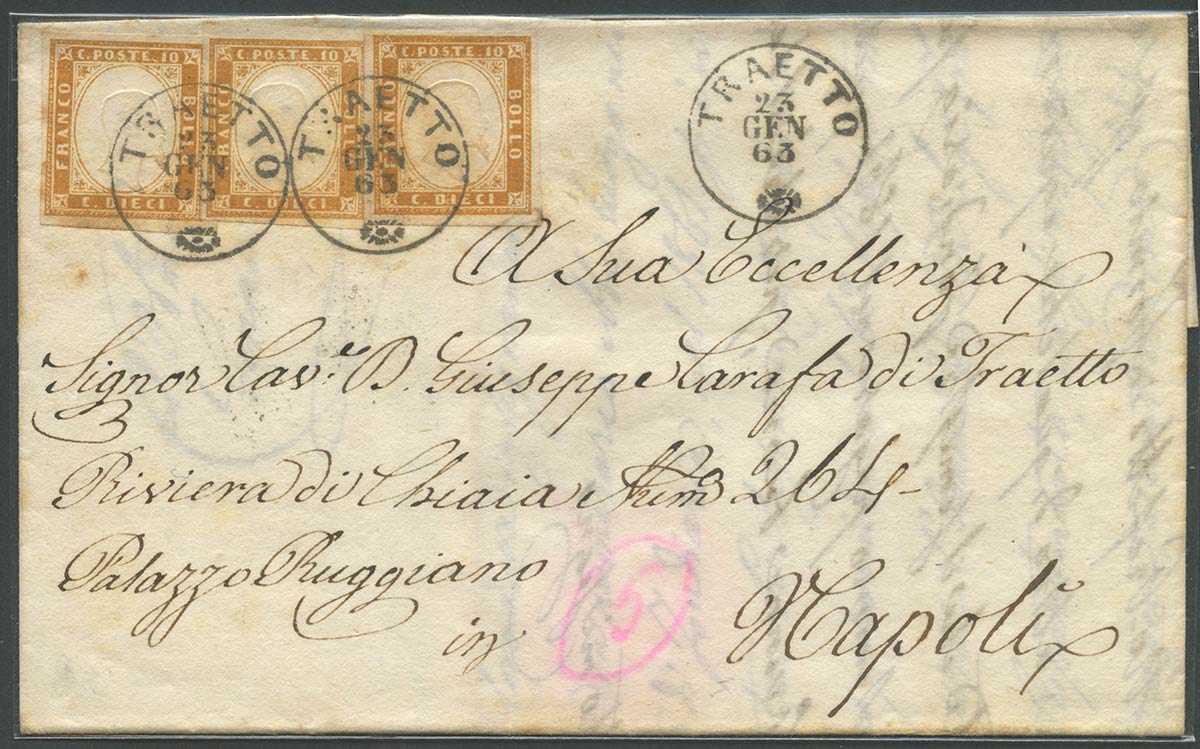 C. POSTE. 10
FRANCO
BOLLO
C. DIECI
C. POSTE. 10
FRANCO
BOLLO
C. DIECI
C. POSTE. 10
BOLLO
C. DIECI
TRAETTO
23
GEN
63
TRAETTO
23
GEN
63
TRAETTO
23
GEN
63
A Sua Eccellenza
Signor Cav.e D. Giuseppe Carafa di Traetto
Riviera di Chiaia Num 264
Palazzo Ruggiano
in Napoli
5